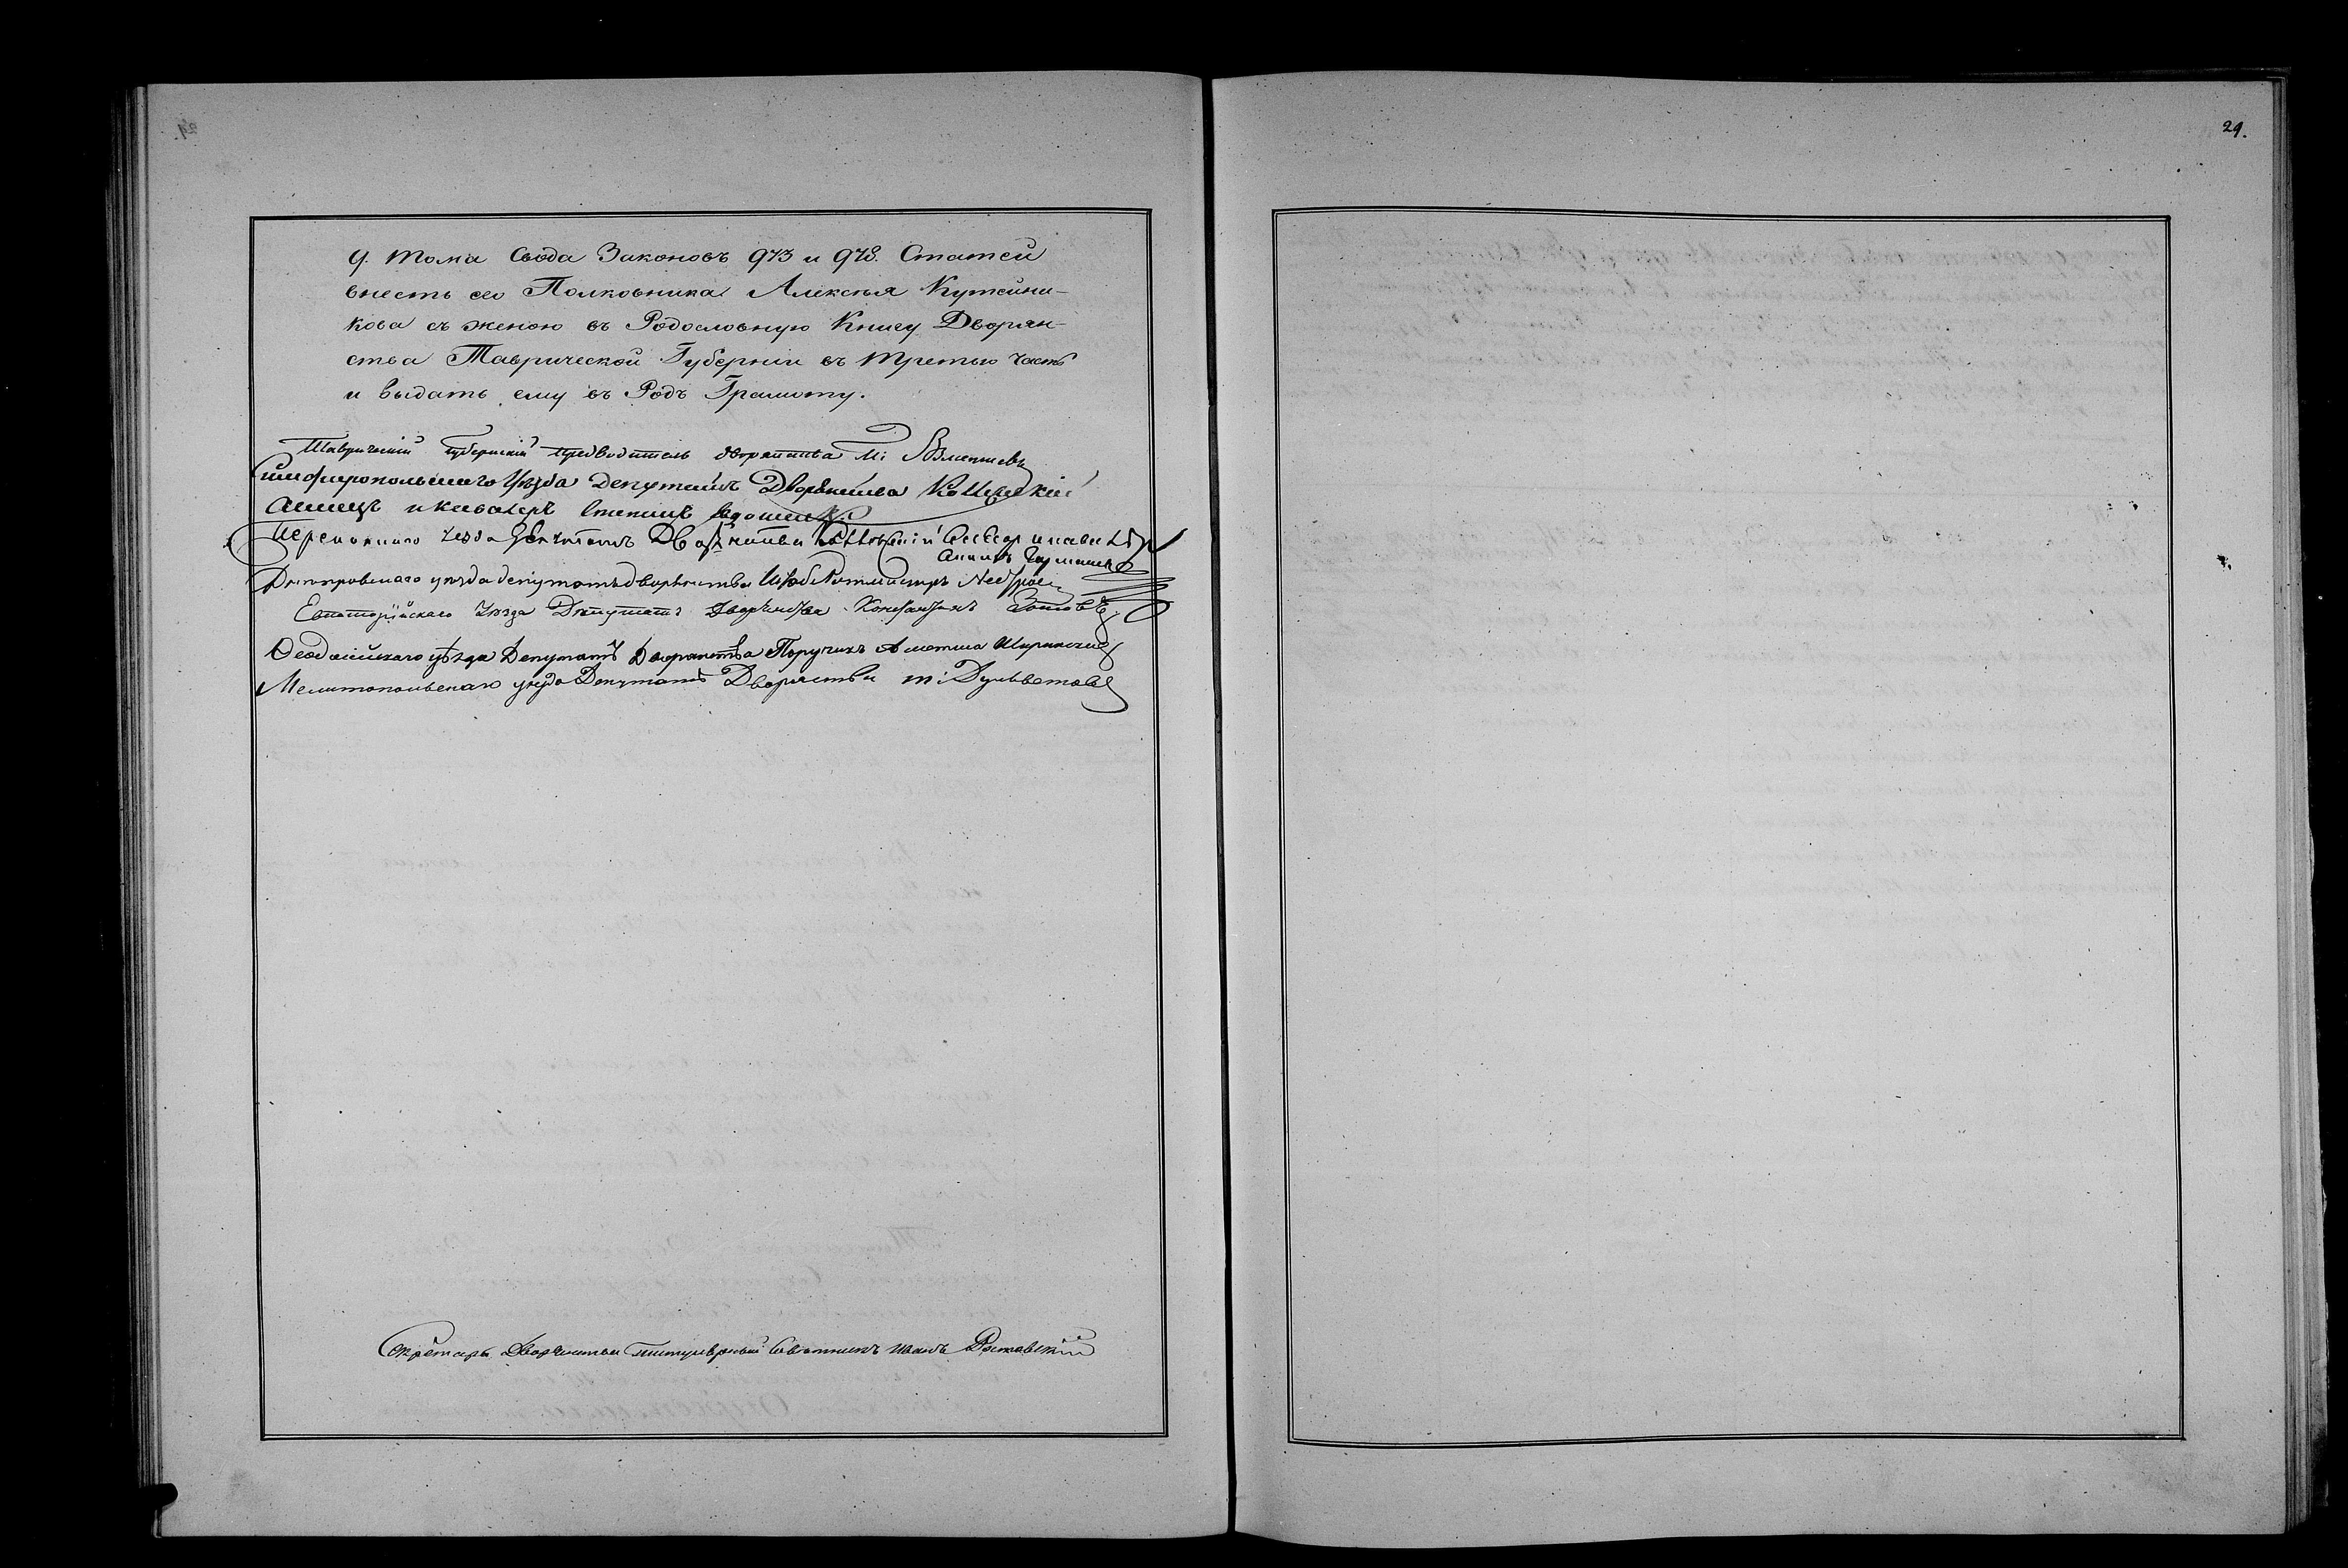 29.
9. тома Свода Законовъ 973 и 978. Статей
внесть его Полковника Алексѣя Кутейни-
кова съ женою въ Родословную Книгу Дворян-
ства Таврической Губерніи въ третью часть
и выдать ему въ Родъ Грамоту.
Таврическій Губернскій Предводитель дворянства М:
Симферопольскаго Уѣзда Депутатъ Дворянства Коллежскій
и Кавалеръ
Перекопскаго Уезда Депутатъ Дворянства
Днѣпровскаго уѣзда депутатъ дворянства Штабъ Ротмистръ
Евпаторійскаго Уѣзда Депутатъ Дворянства Константинъ Зотовъ
Ѳеодосійскаго уѣзда Депутатъ Дворянства Поручикъ Аметша Ширинскій
Мелитопольскаго уѣзда Депутатъ Дворянства
Секретарь Дворянства Титулярный Совѣтникъ Иванъ